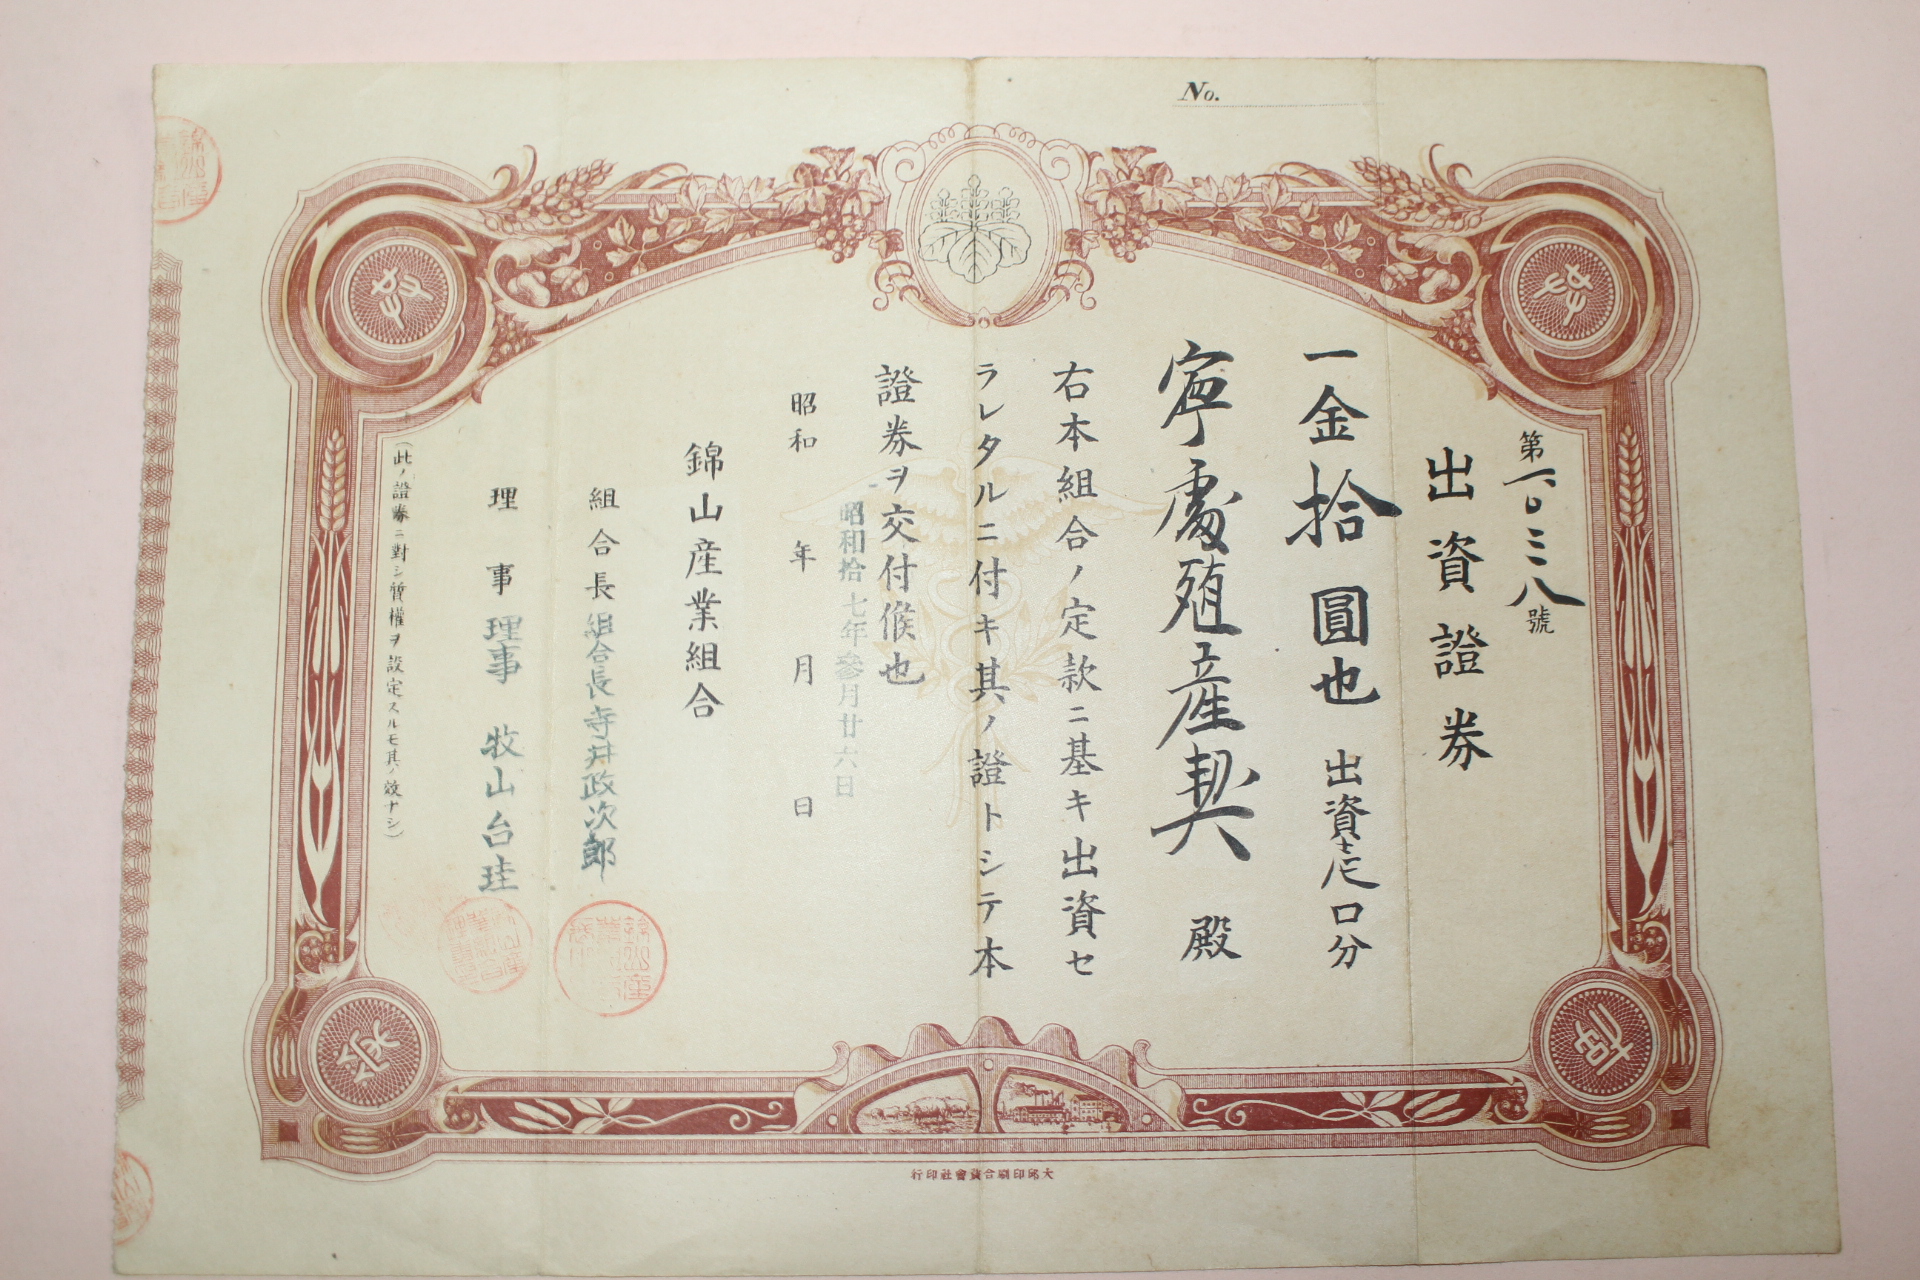 No.
第一〇三三八號
出資證券
一金拾圓也 出資壱口分
殖産契 殿
右本組合ノ定款ニ基キ出資セ
ラレタルニ付キ其ノ證トシテ本
證券ヲ交付候也
昭和拾七年參月廿六日
昭和 年 月 日
錦山産業組合
組合長 組合長寺井政次郎
理事 理事 牧山台珪
(此ノ證券ニ對シ質權ヲ設定スルモ其ノ效ナシ)
行印社會資合刷印邱大